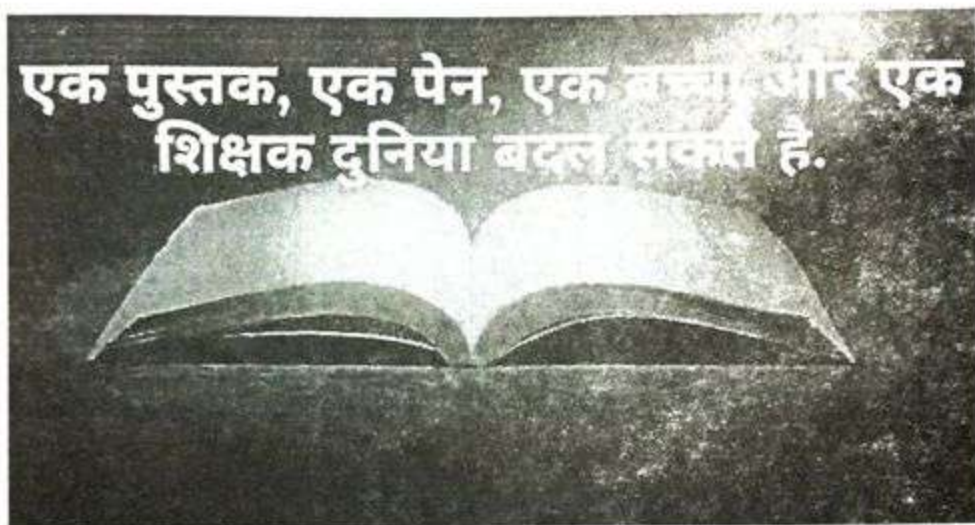 एक पुस्तक, एक पेन, एक बच्चा और एक
शिक्षक दुनिया बदल सकते है.